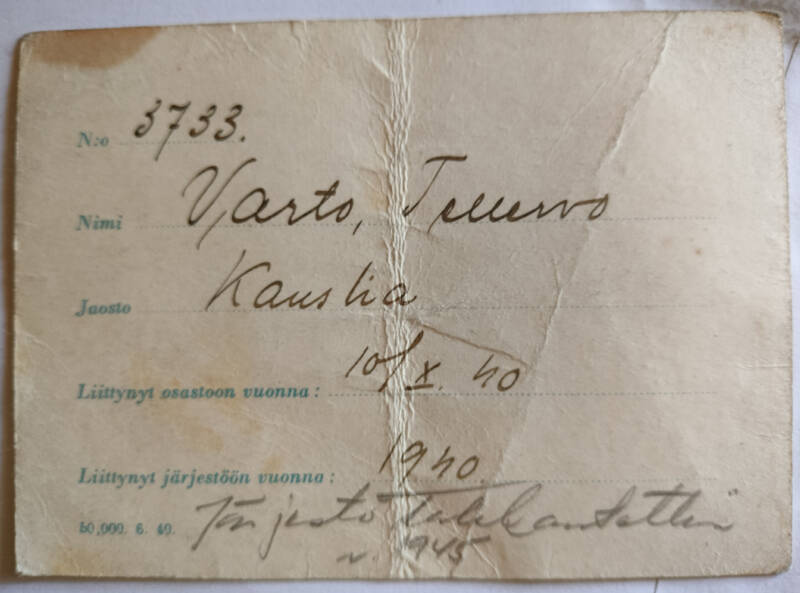 N:o 3733.
Nimi Varto, Tellervo
Jaosto Kanslia
Liittynyt osastoon vuonna: 10/X. 40
Liittynyt järjestöön vuonna: 1940
50,000. 6. 40. Järjestö Lakkautettiin
v. 1945